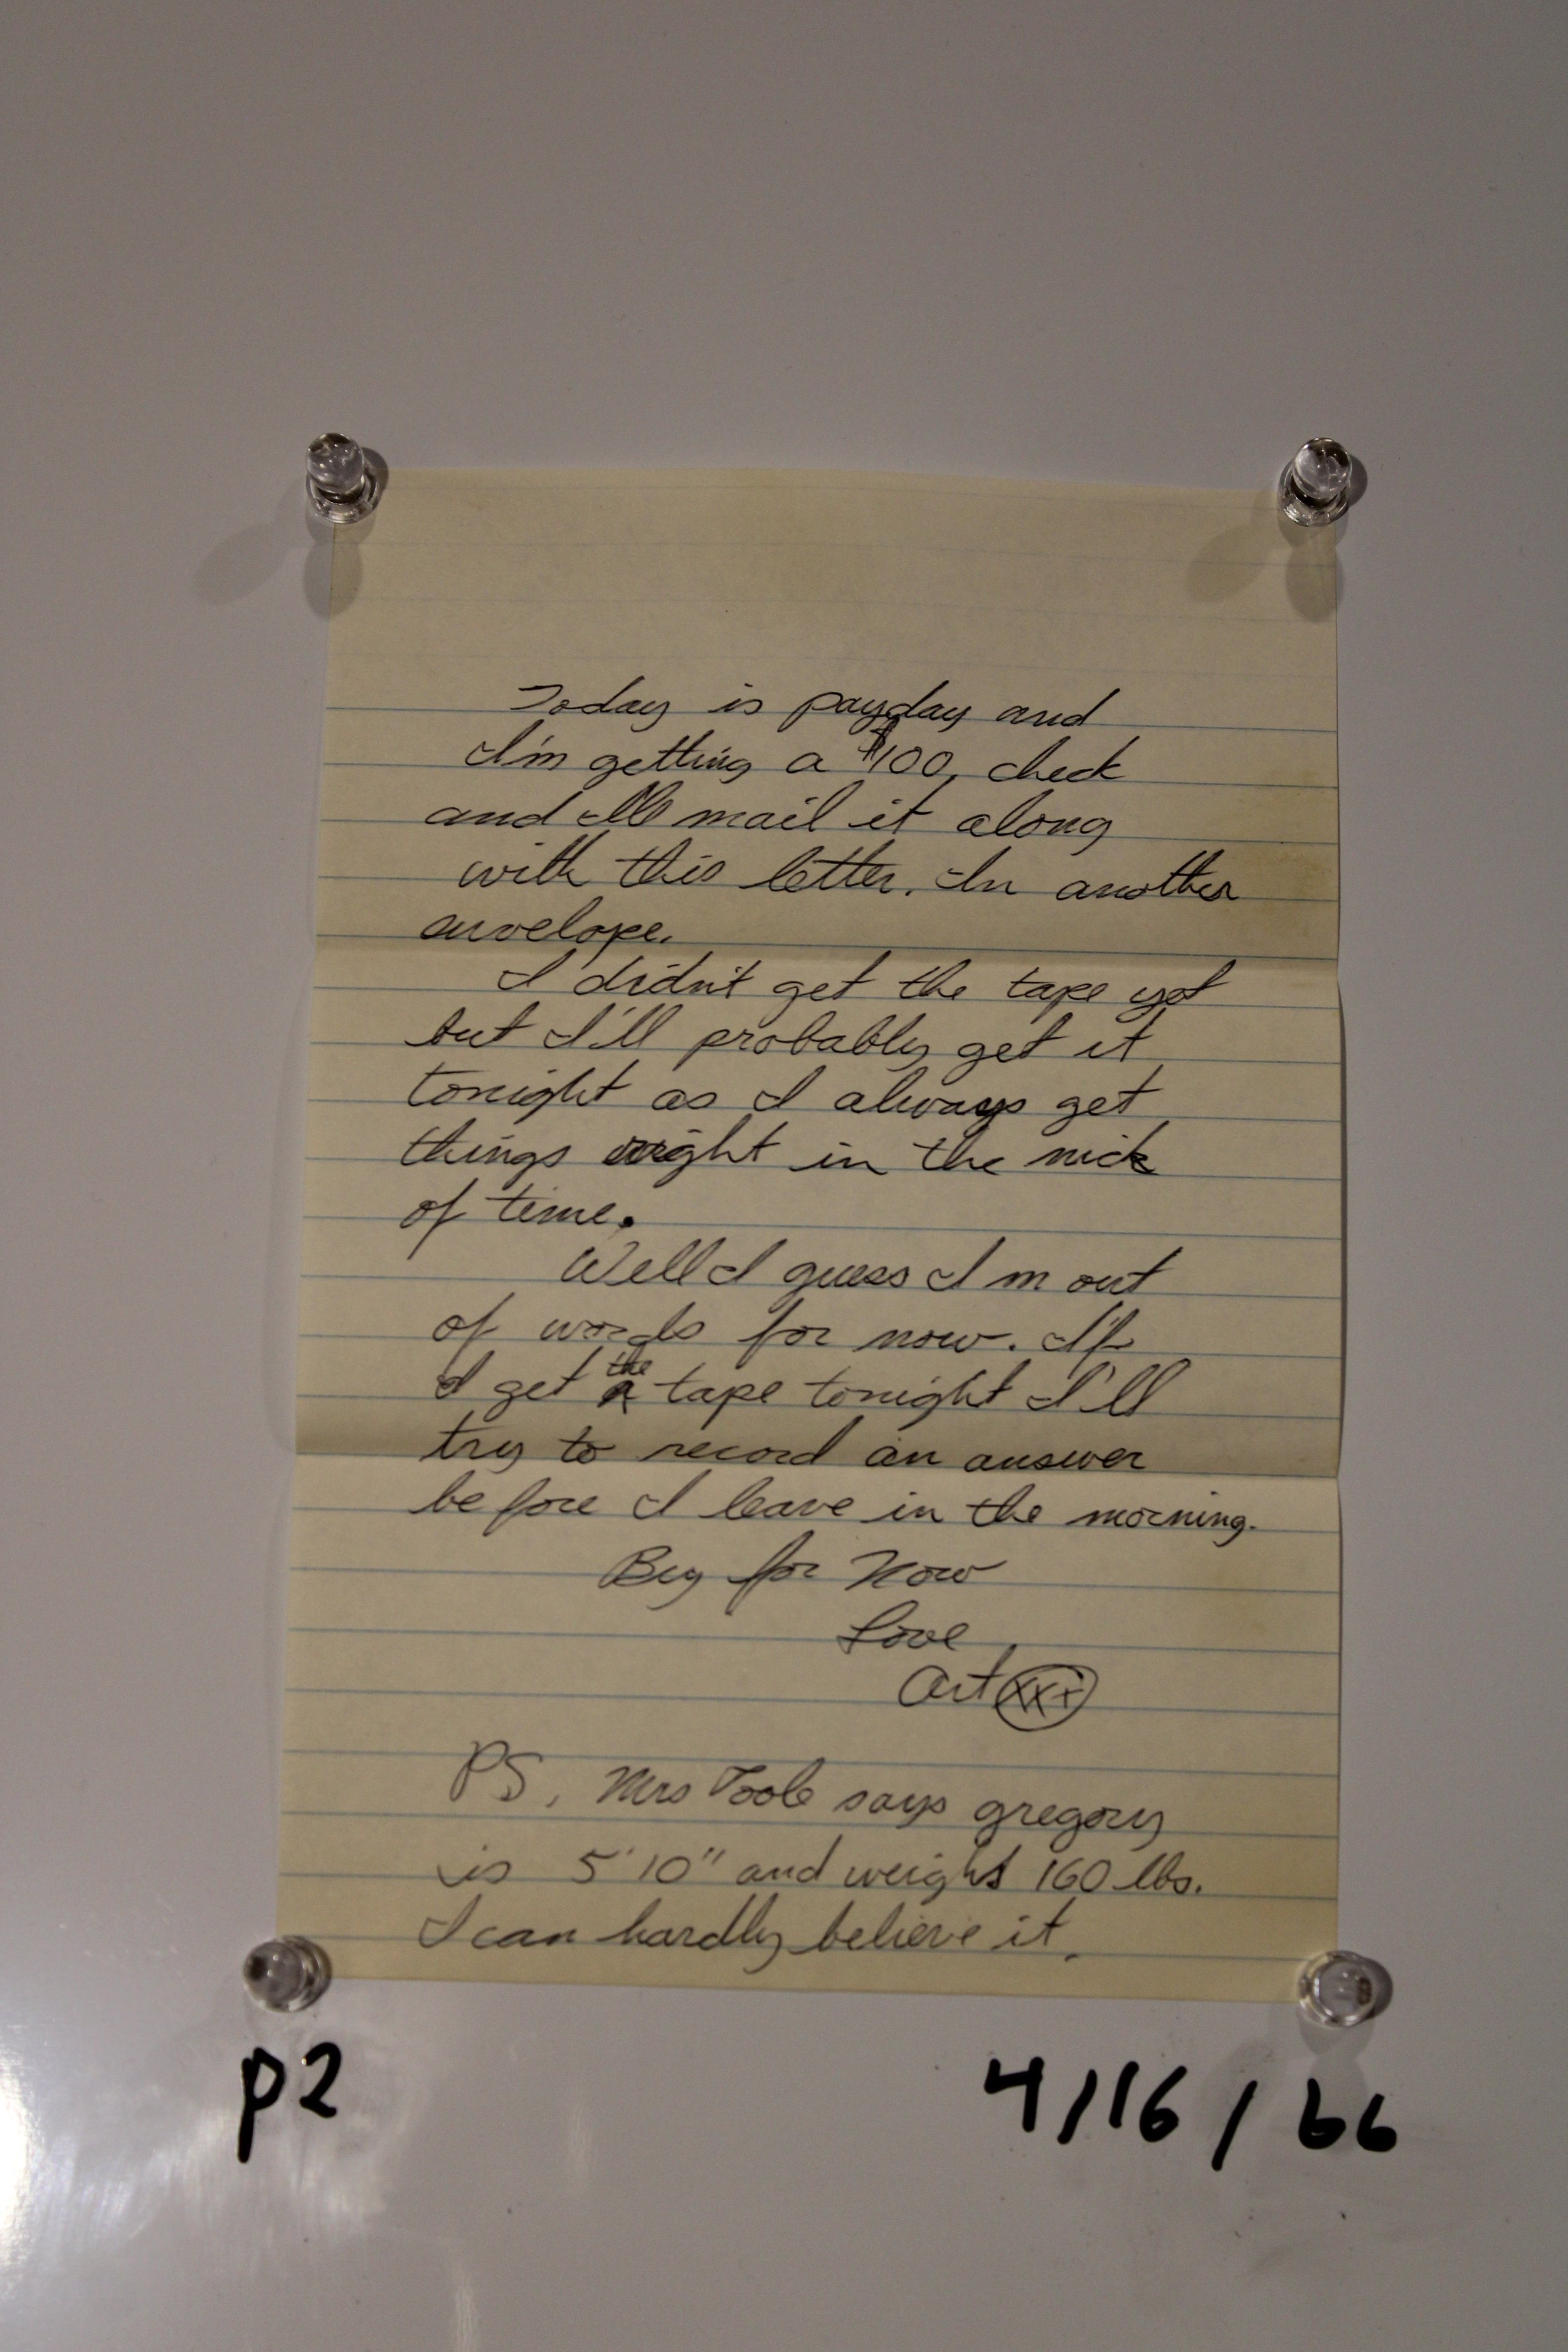 Today is payday and
I'm getting a $100. check
and I'll mail it along
with this letter. In another
envelope.
I didn't get the tape yet
but I'll probably get it
tonight as I always get
things right in the nick
of time.
Well I guess I'm out
of words for now. If
I get the tape tonight I'll
try to record an answer
before I leave in the morning.
By for Now
Love
Art xxx
PS. Mrs Toole says gregory
is 5'10" and weighs 160 lbs.
I can hardly believe it.
p2 4/16/66